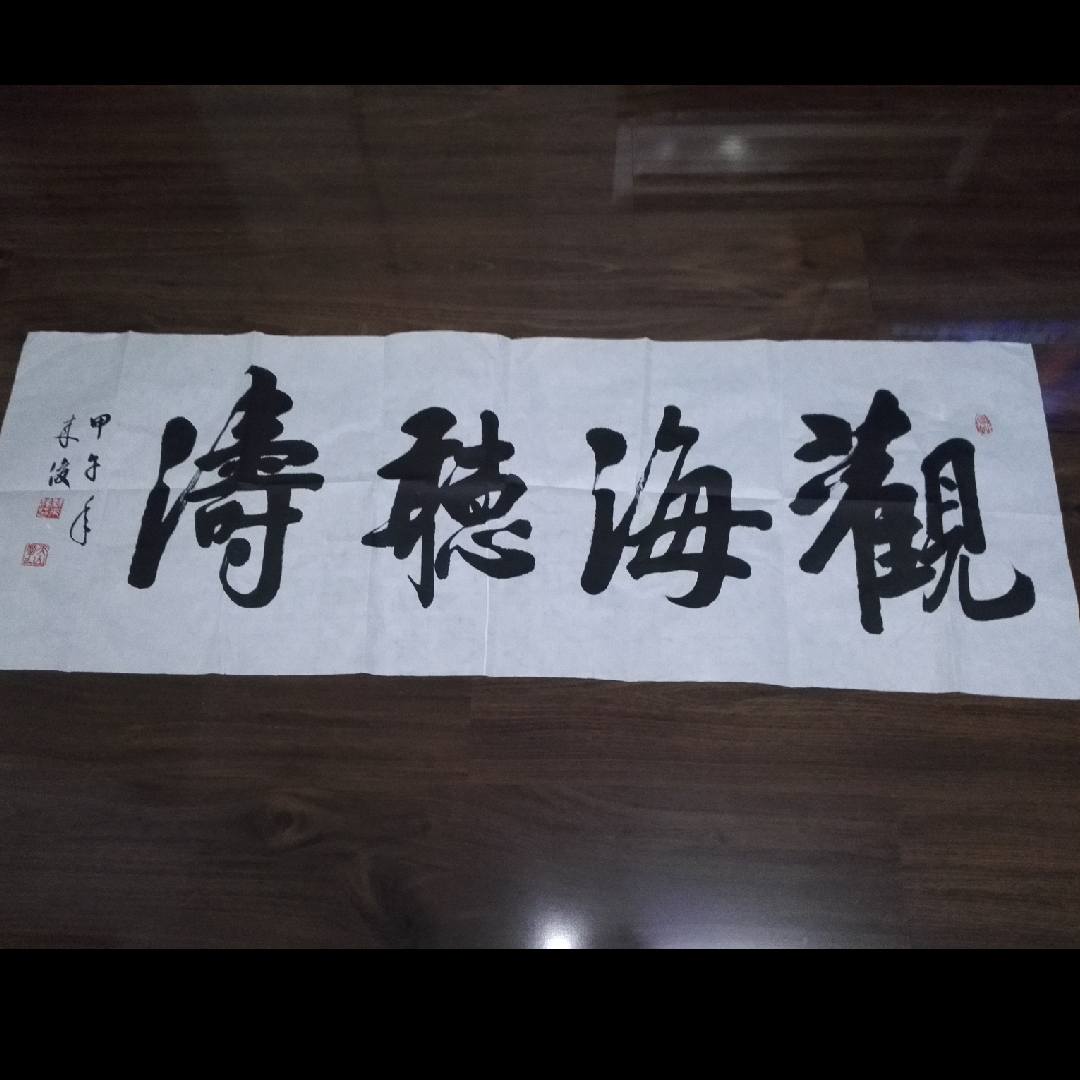 觀海聽濤
甲午年